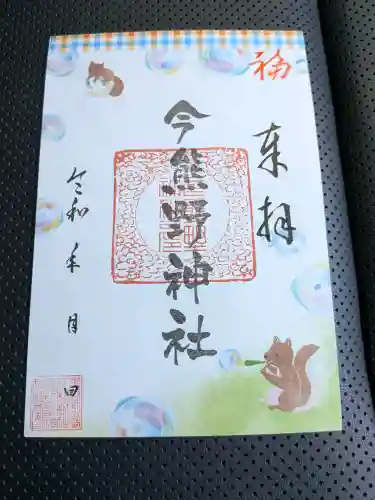 福
奉拝
今熊野神社
令和 年 月
日